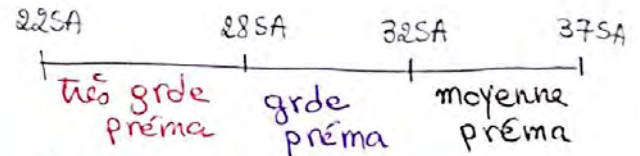 22SA 28SA 32SA 37SA
très grde
préma
grde
préma
moyenne
préma